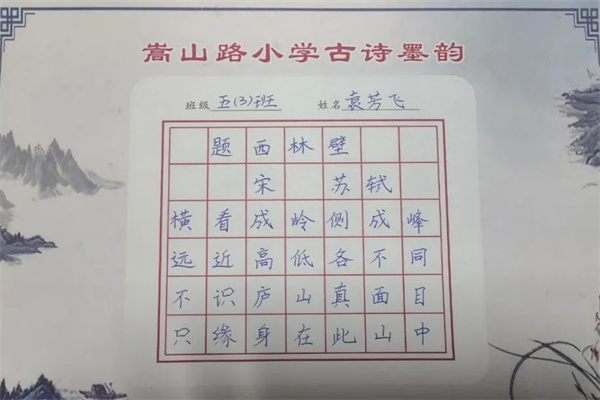 嵩山路小学古诗墨韵
班级 五(3)班 姓名 袁芳飞
题西林壁
宋 苏轼
横看成岭侧成峰
远近高低各不同
不识庐山真面目
只缘身在此山中